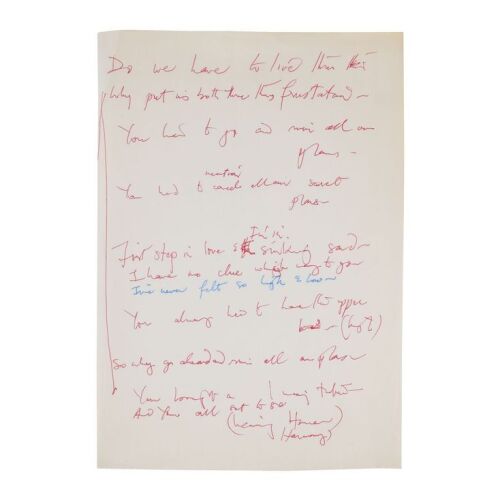 Do we have to live this
Why put us both thru this frustration -
You had to go and ruin all our
plans -
mention
You had to cancel all our secret
plans -
I'm in
First step in love sinking sand -
I have no clue which way to go
I've never felt so high & low -
You always had to have the upper
hand - (high)
So why go ahead and ruin all our plans
You bought a 1 way ticket
And you all out to sea
(hearing
Harmony)